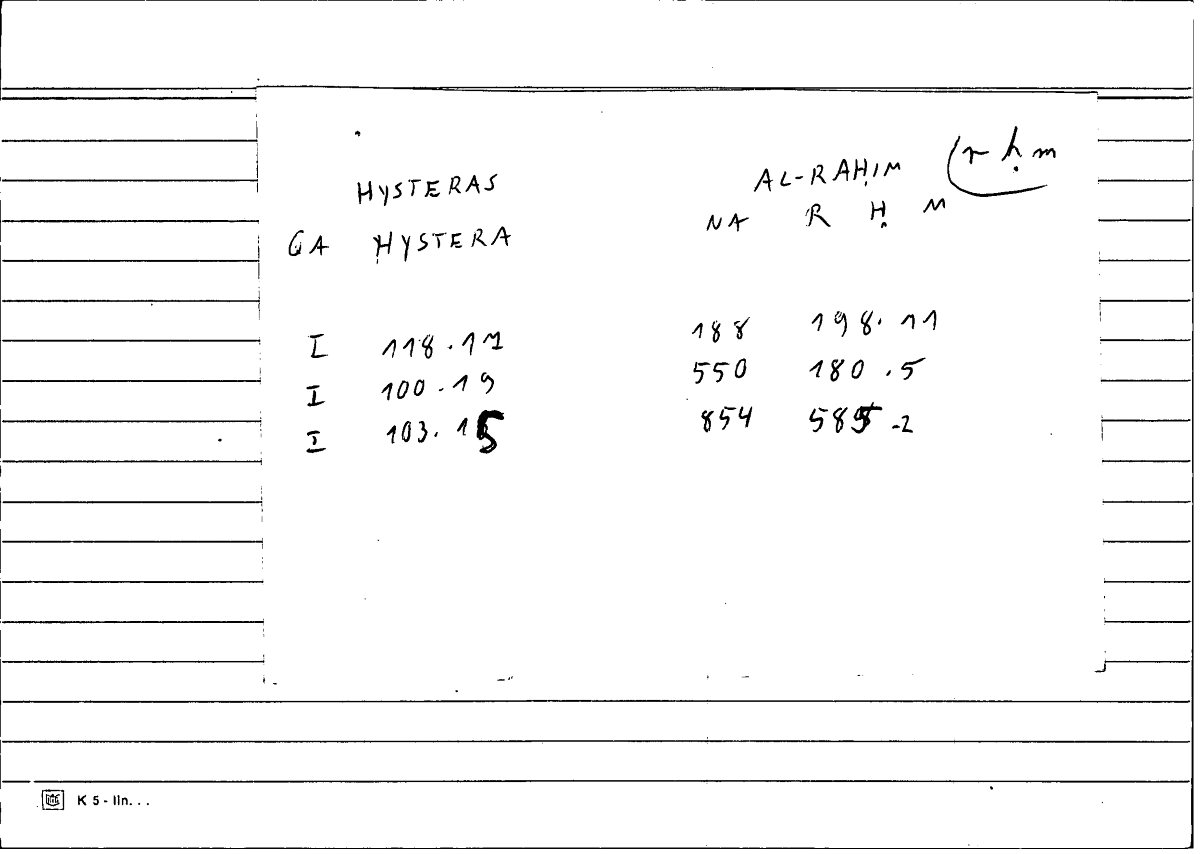 HYSTERAS AL-RAḤIM (r ḥ m
GA HYSTERA NA R Ḥ M
I 118.17 188 198.11
I 100.19 550 180.5
I 103.15 854 585-2
K 5 - lln. . .